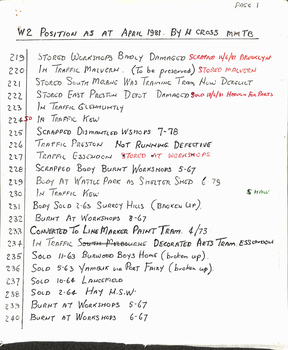 PAGE 1
W2 POSITION AS AT APRIL 1981. BY N CROSS MMTB
219 STORED WORKSHOPS BADLY DAMAGED SCRAPPED 10/6/81 BROOKLYN
220 IN TRAFFIC MALVERN. (TO be preserved) STORED MALVERN
221 STORED SOUTH MELBNE WAS TRAINING TRAM NOW DERELICT
222 STORED EAST PRESTON DEPOT DAMAGED SOLD 10/6/81 FOR PARTS
223 IN TRAFFIC GLENHUNTLY
224 IN TRAFFIC KEW
225 SCRAPPED DISMANTLED WSHOPS 7-78
226 TRAFFIC PRESTON NOT RUNNING DEFECTIVE
227 TRAFFIC ESSENDON STORED AT WORKSHOPS
228 SCRAPPED BODY BURNT WORKSHOPS 5-67
229 BODY AT WATTLE PARK AS SHELTER SHED 79
230 IN TRAFFIC KEW
231 BODY SOLD 2-63 SURREY HILLS (BROKEN UP).
232 BURNT AT WORKSHOPS 8-67
233 CONVERTED TO LINE MARKER PAINT TRAM. 4/73
234 IN TRAFFIC SOUTH MELBOURNE DECORATED ARTS TRAM. ESSENDON
235 SOLD 11-63 BURWOOD BOYS HOME (broken up).
236 SOLD 5-63 YAMBUK via PORT FAIRY (broken up).
237 SOLD 10-64 LANCEFIELD
238 SOLD 2-64 HAY N.S.W.
239 BURNT AT WORKSHOPS 5-67
240 BURNT AT WORKSHOPS 6-67